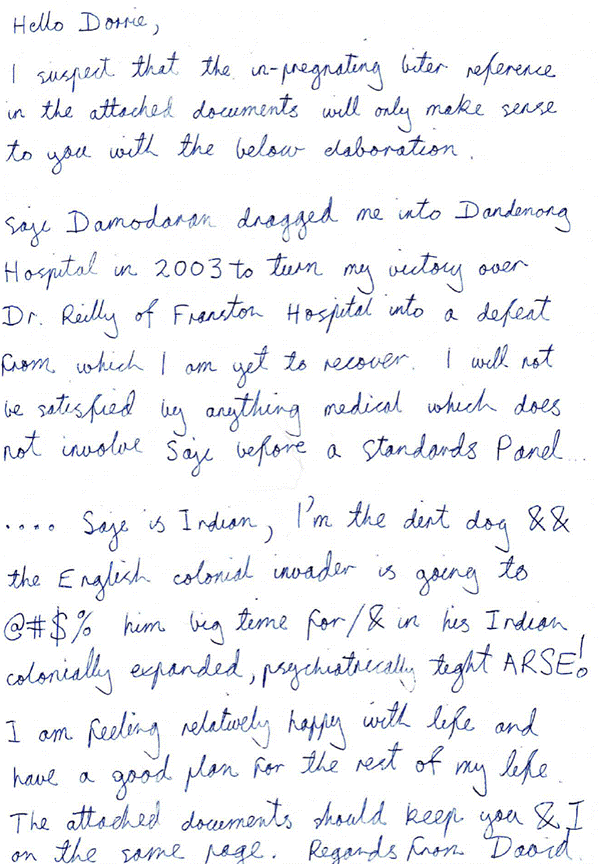 Hello Dorrie,
I suspect that the in-pregnating biter reference
in the attached documents will only make sense
to you with the below elaboration.
Saji Damodaran dragged me into Dandenong
Hospital in 2003 to turn my victory over
Dr. Reilly of Franston Hospital into a defeat
from which I am yet to recover. I will not
be satisfied by anything medical which does
not involve Saji before a Standards Panel...
.... Saji is Indian, I'm the dirt dog &&
the English colonial invader is going to
@#$% him big time for/& in his Indian
colonially expanded, psychiatrically tight ARSE!
I am feeling relatively happy with life and
have a good plan for the rest of my life.
The attached documents should keep you & I
on the same page. Regards From David.